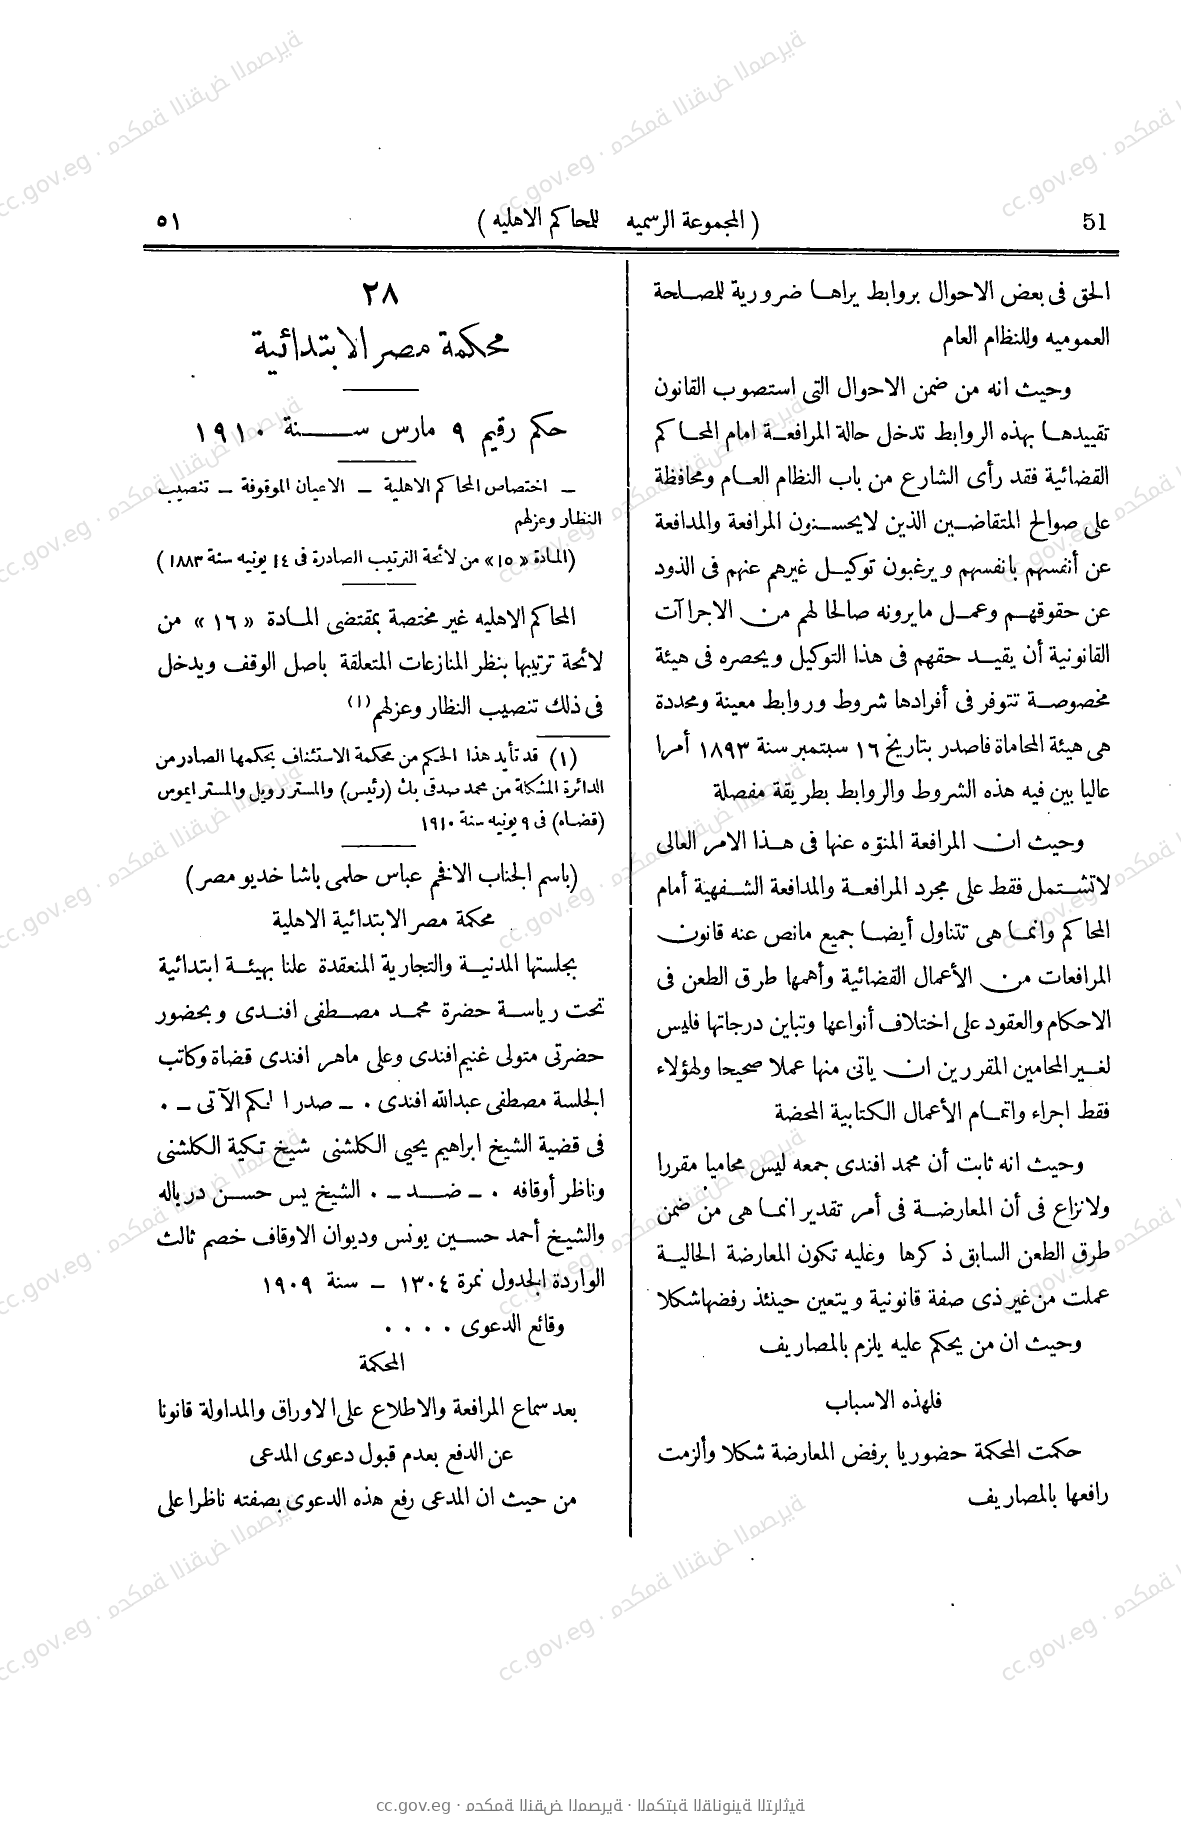 51 (المجموعة الرسميه للمحاكم الاهليه) ٥١
الحق فى بعض الاحوال بروابط يراها ضرورية للمصلحة
العموميه وللنظام العام
وحيث انه من ضمن الاحوال التى استصوب القانون
تقييدها بهذه الروابط تدخل حالة المرافعة امام المحاكم
القضائية فقد رأى الشارع من باب النظام العام ومحافظة
على صوالح المتقاضين الذين لايحسنون المرافعة والمدافعة
عن أنفسهم بانفسهم ويرغبون توكيل غيرهم عنهم فى الذود
عن حقوقهم وعمل مايرونه صالحا لهم من الاجراآت
القانونية أن يقيد حقهم فى هذا التوكيل ويحصره فى هيئة
مخصوصة تتوفر فى أفرادها شروط وروابط معينة ومحددة
هى هيئة المحاماة فاصدر بتاريخ ١٦ سبتمبر سنة ١٨٩٣ أمرا
عاليا بين فيه هذه الشروط والروابط بطريقة مفصلة
وحيث ان المرافعة المنوّه عنها فى هذا الامر العالى
لاتشتمل فقط على مجرد المرافعة والمدافعة الشفهية أمام
المحاكم وانما هى تتناول أيضا جميع مانص عنه قانون
المرافعات من الأعمال القضائية وأهمها طرق الطعن فى
الاحكام والعقود على اختلاف أنواعها وتباين درجاتها فليس
لغير المحامين المقررين ان ياتى منها عملا صحيحا ولهؤلاء
فقط اجراء واتمام الأعمال الكتابية المحضة
وحيث انه ثابت أن محمد افندى جمعه ليس محاميا مقررا
ولانزاع فى أن المعارضة فى أمر تقدير انما هى من ضمن
طرق الطعن السابق ذكرها وعليه تكون المعارضة الحالية
عملت من غير ذى صفة قانونية ويتعين حينئذ رفضها شكلا
وحيث ان من يحكم عليه يلزم بالمصاريف
فلهذه الاسباب
حكمت المحكمة حضوريا برفض المعارضة شكلا وألزمت
رافعها بالمصاريف
٢٨
محكمة مصر الابتدائية
حكم رقيم ٩ مارس سنة ١٩١٠
ــ اختصاص المحاكم الاهلية ــ الاعيان الموقوفة ــ تنصيب
النظار وعزلهم
(المادة «١٥» من لائحة الترتيب الصادرة فى ١٤ يونيه سنة ١٨٨٣)
المحاكم الاهليه غير مختصة بمقتضى المادة «١٦» من
لائحة ترتيبها بنظر المنازعات المتعلقة باصل الوقف ويدخل
فى ذلك تنصيب النظار وعزلهم (١)
(١) قد تأيد هذا الحكم من محكمة الاستئناف بحكمها الصادر من
الدائرة المشكلة من محمد صدقى بك (رئيس) والمستر رويل والمستر ايموس
(قضاه) فى ٩ يونيه سنة ١٩١٠
(باسم الجناب الافخم عباس حلمى باشا خديو مصر)
محكمة مصر الابتدائية الاهلية
بجلستها المدنية والتجارية المنعقدة علنا بهيئة ابتدائية
تحت رياسة حضرة محمد مصطفى افندى وبحضور
حضرتى متولى غنيم افندى وعلى ماهر افندى قضاة وكاتب
الجلسة مصطفى عبدالله افندى . ــ صدر الحكم الآتى ــ .
فى قضية الشيخ ابراهيم يحيى الكلشنى شيخ تكية الكلشنى
وناظر أوقافه . ــ ضد ــ . الشيخ يس حسن درباله
والشيخ أحمد حسين يونس وديوان الاوقاف خصم ثالث
الواردة الجدول نمرة ١٣٠٤ ــ سنة ١٩٠٩
وقائع الدعوى . . . .
المحكمة
بعد سماع المرافعة والاطلاع على الاوراق والمداولة قانونا
عن الدفع بعدم قبول دعوى المدعى
من حيث ان المدعى رفع هذه الدعوى بصفته ناظرا على
cc.gov.eg · محكمة النقض المصرية · المكتبة القانونية التراثية